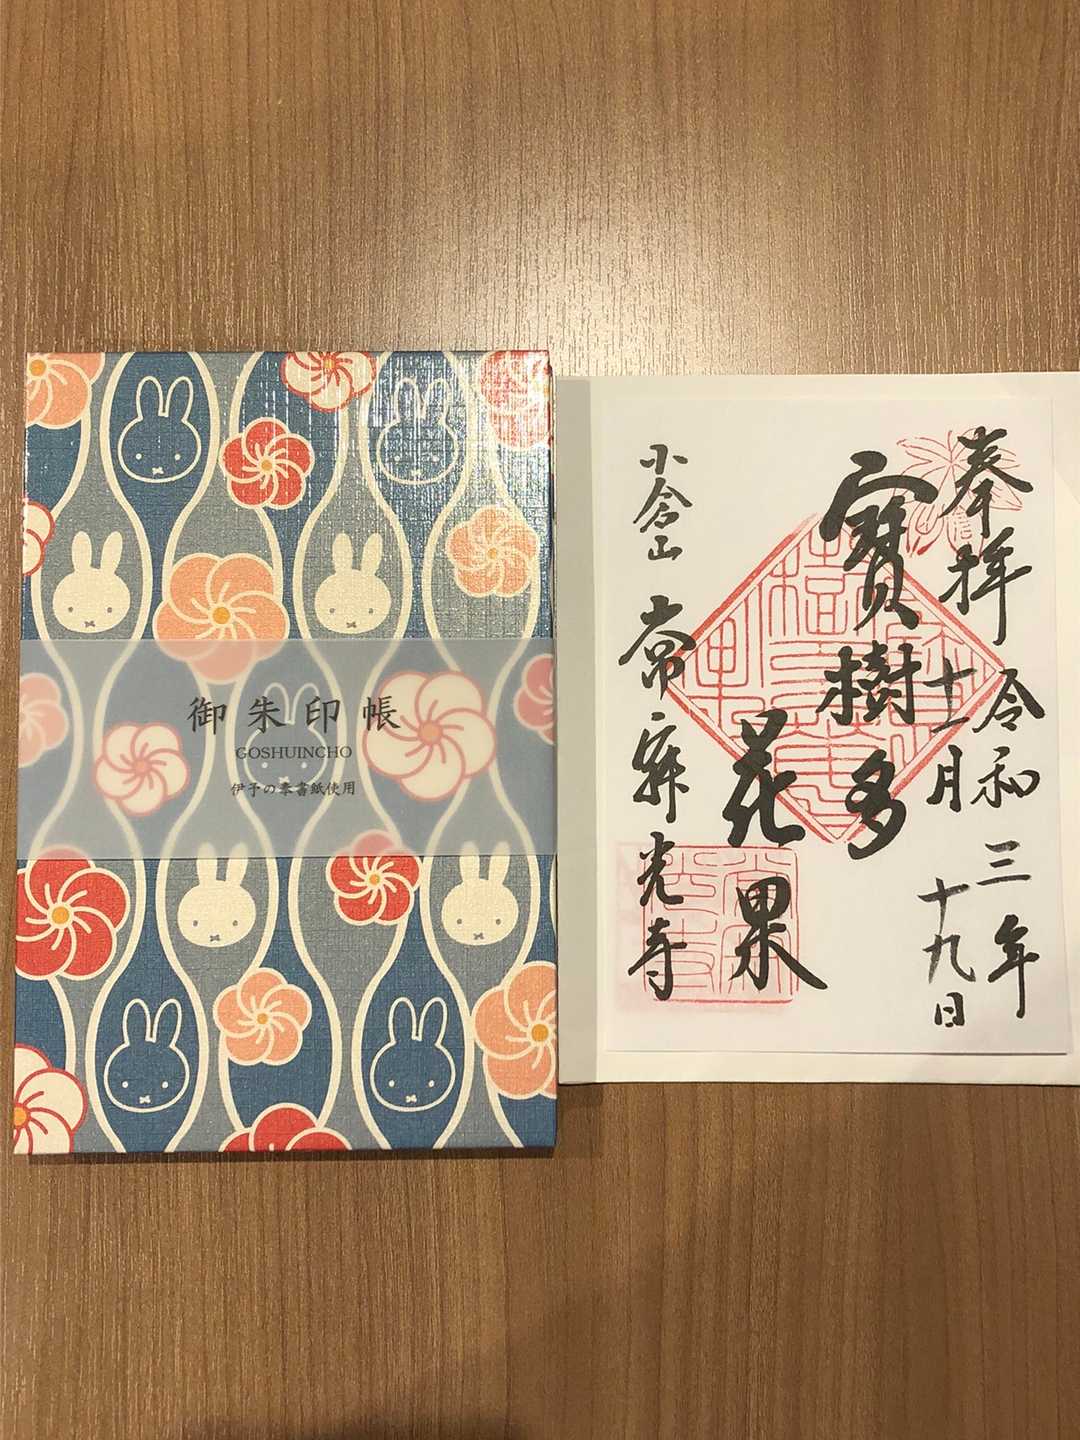 御朱印帳
GOSHUINCHO
伊予の奉書紙使用
奉拝 令和三年
十一月十九日
寳樹多
花果
小倉山 常寂光寺